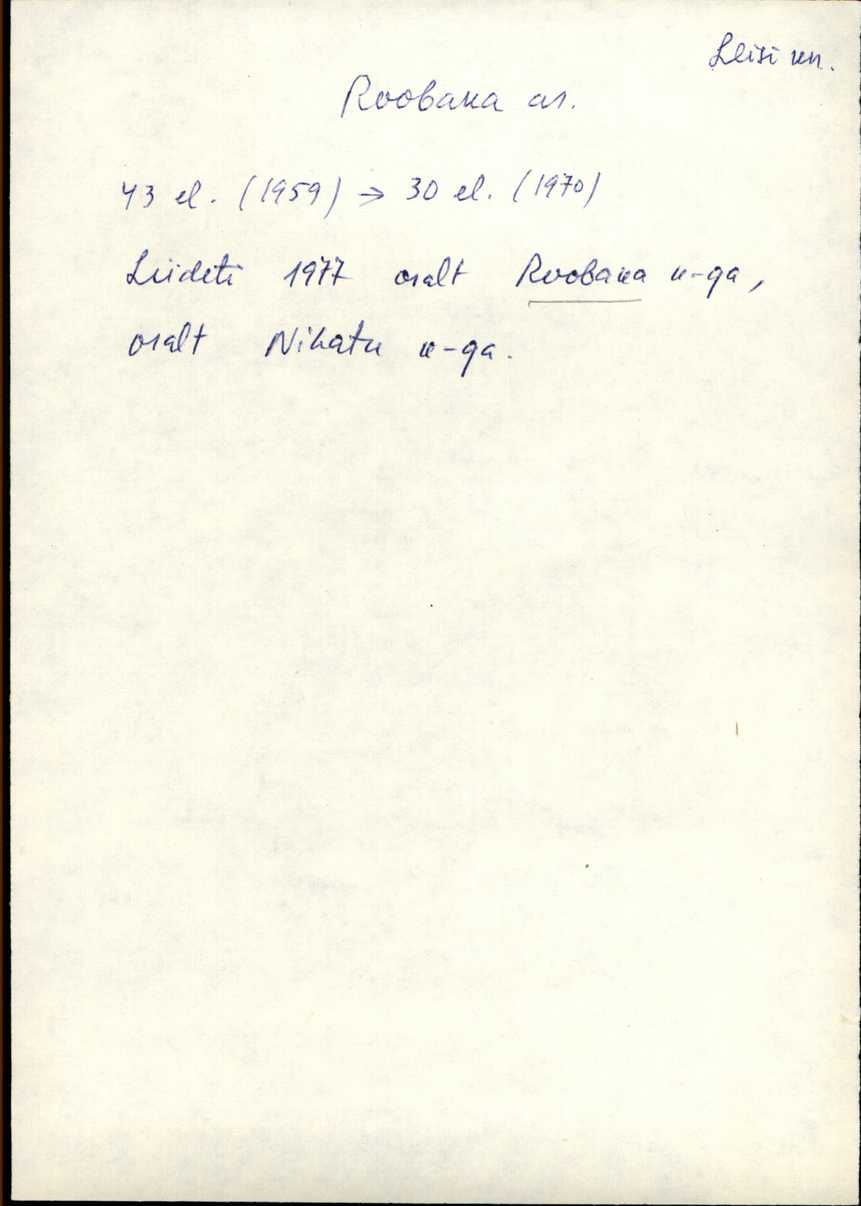 Leisi kn.
Roobaka as.
43 el. (1959) → 30 el. (1970)
Liideti 1977 osalt Roobaka k-ga,
osalt Nihatu k-ga.